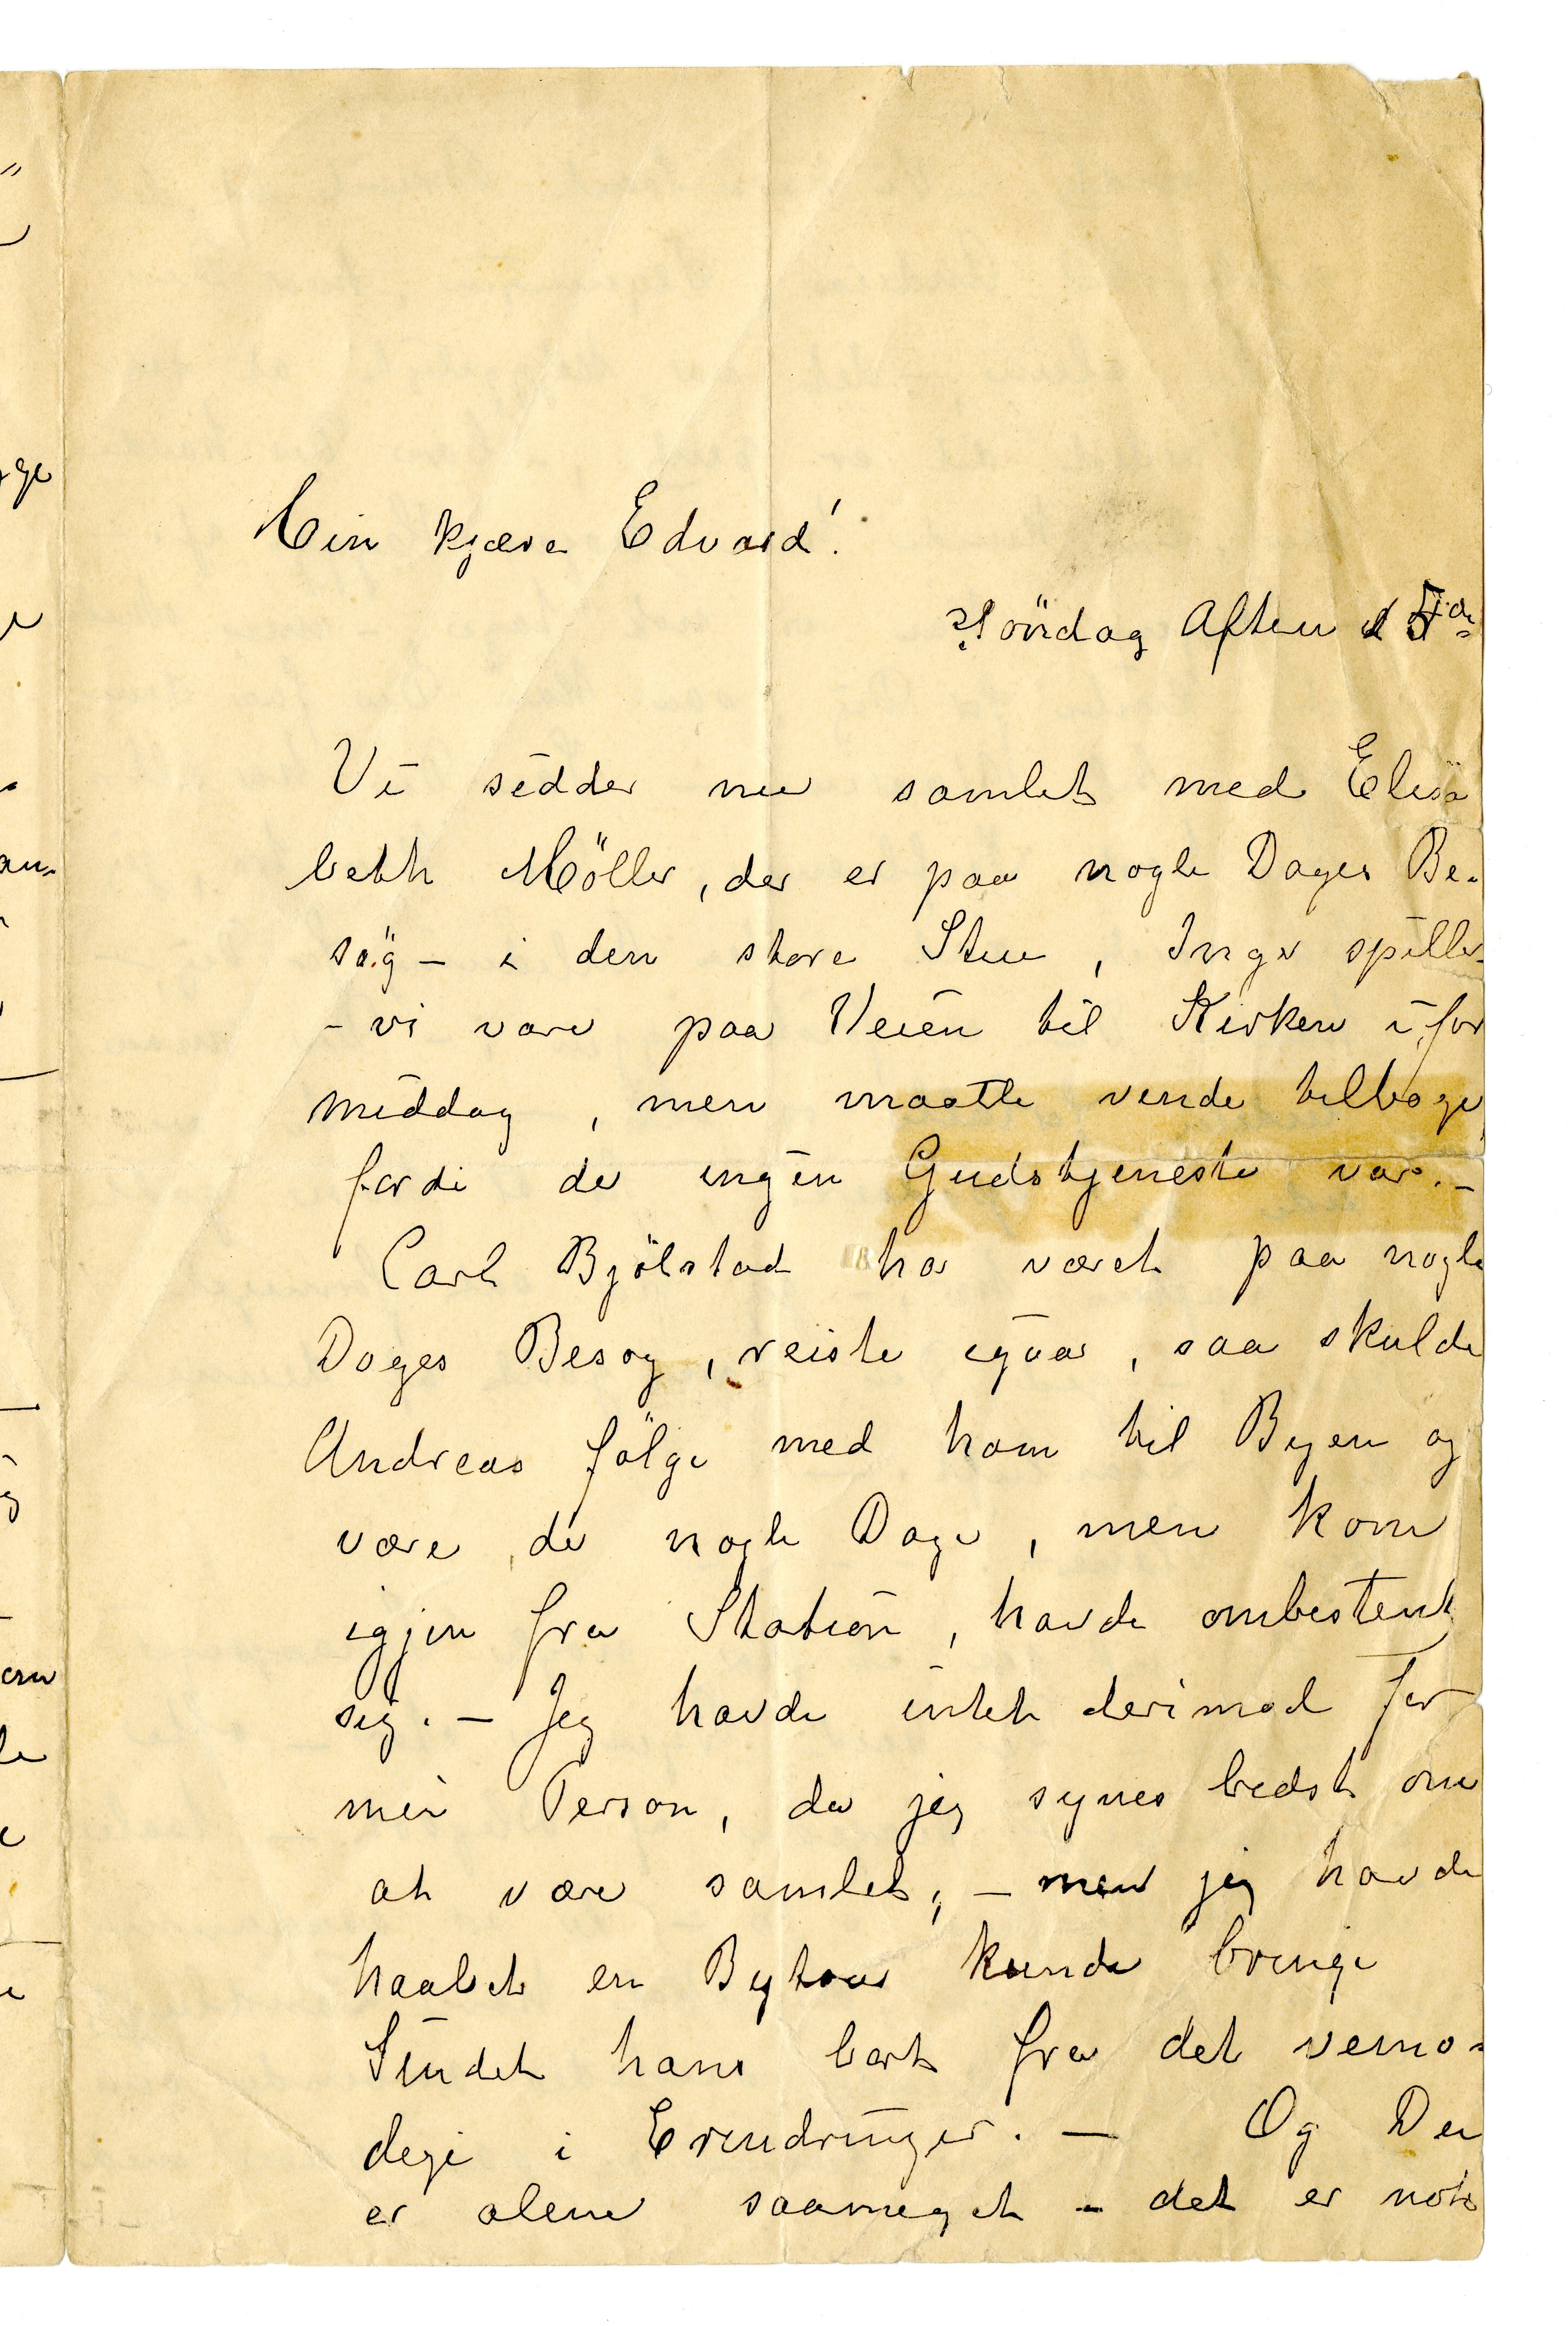 Min kjære Edvard!
Söndag Aften d 5te
Vi sidder nu samlet med Elisa
beth Möller, der er paa nogle Dages Be-
søg – i den store Stue, Inger spiller
– vi vare paa Veien til Kirken i for
middag, men maatte vende tilbage
fordi de ingen Gudstjeneste var. –
Carl Bjölstad har været paa nogle
Dages Besøg, reiste igaar, saa skulde
Andreas fölge med ham til Byen og
være de nogle Dage, men kom
igjen fra Station, havde ombestemt
sig. – Jeg havde intet derimod for
min Person, da jeg synes bedst om
at være samlet, – men jeg havde
haabet en Bytour kunde bringe
Sindet hans bort fra det vemo-
dige i Erindringer. – Og Du
er alene saameget – det er not
ge
an-
em